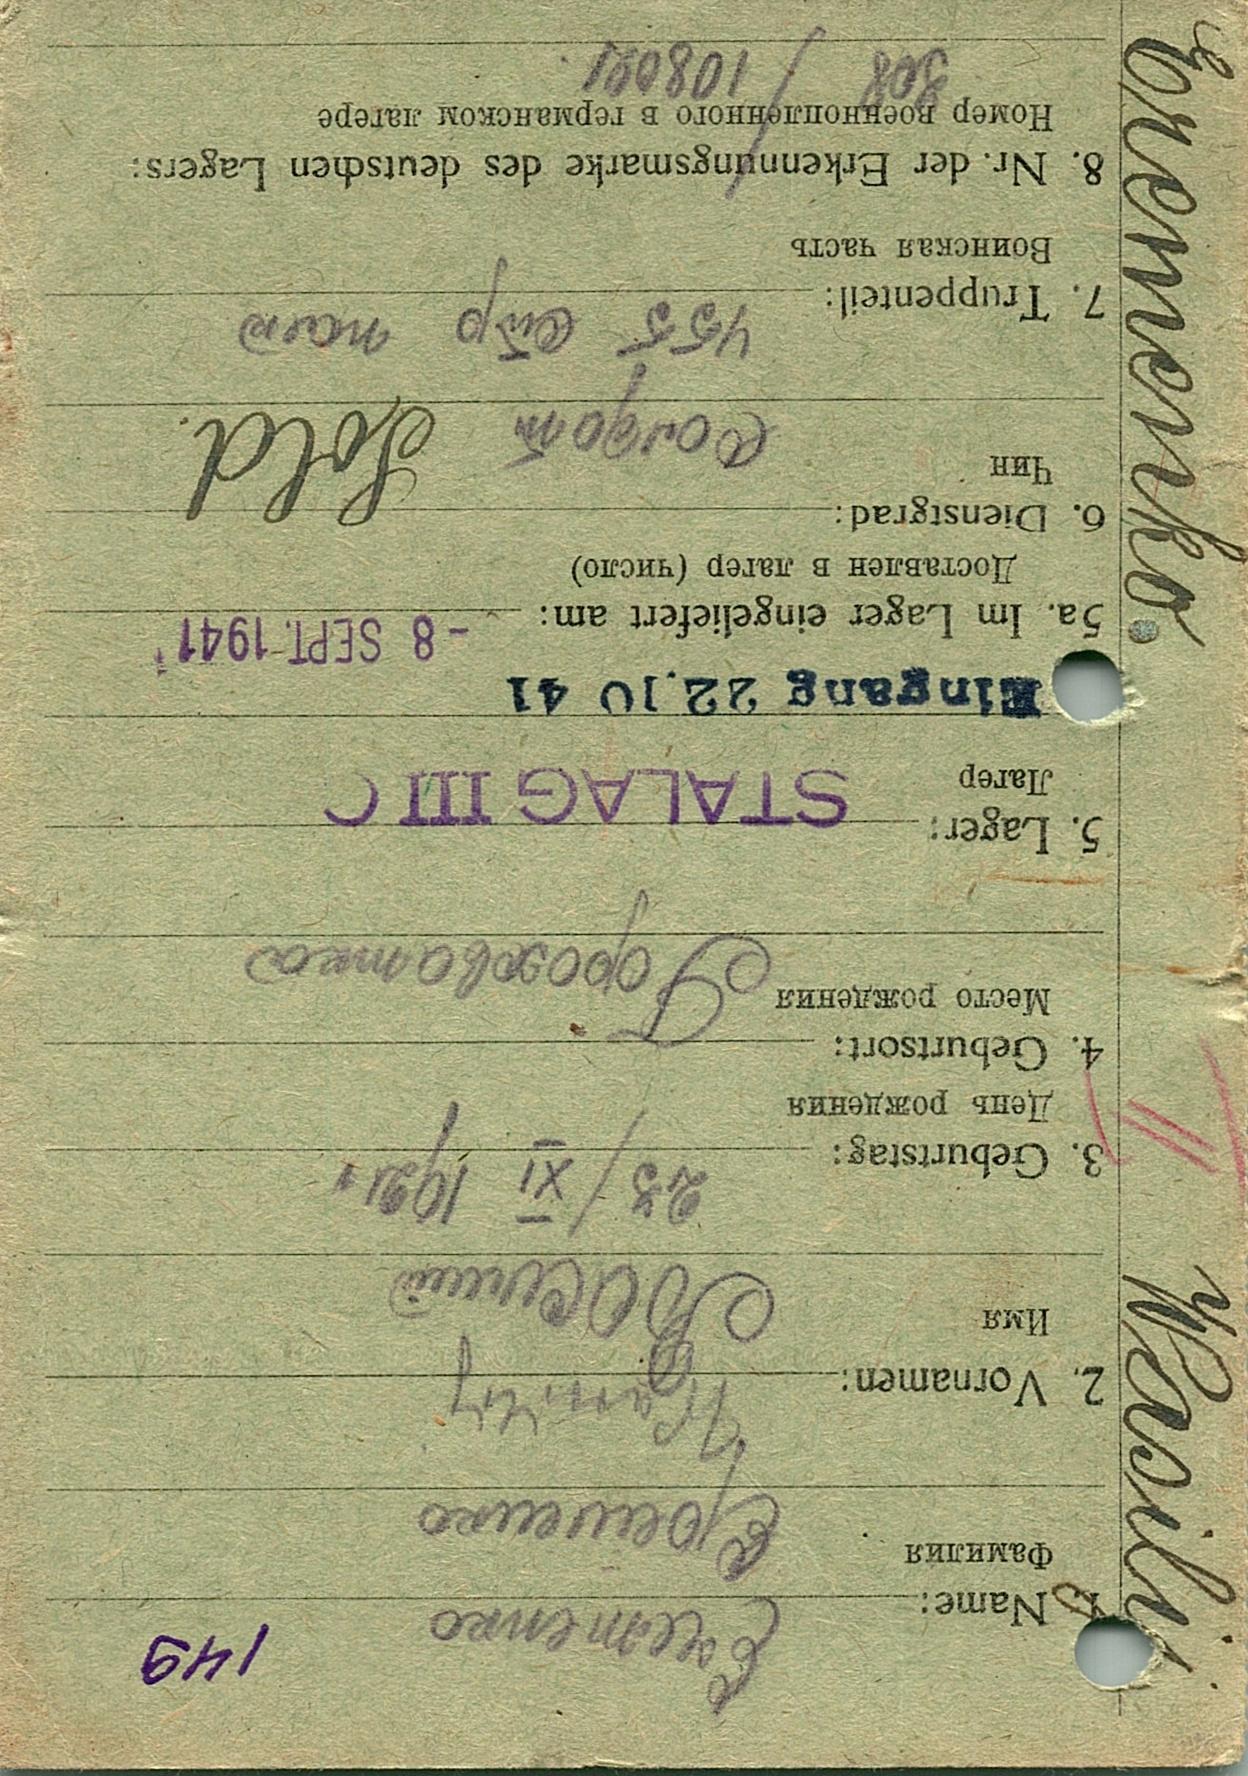 149
1. Name:
Фамилия
2. Vornamen:
Имя
Василий
3. Geburtstag: 23/XI 1921
День рождения
4. Geburtsort:
Место рождения Горохватка
5. Lager: STALAG III C
Лагер
Eingang 22.10 41
5a. Im Lager eingeliefert am: -8 SEPT. 1941
Доставлен в лагер (число)
6. Dienstgrad: Sold.
Чин солдат
7. Truppenteil: 455 стр полк
Воинская часть
8. Nr. der Erkennungsmarke des deutschen Lagers:
Номер военнопленного в германском лагере
308 / 108021
Eremenko. Wasilij